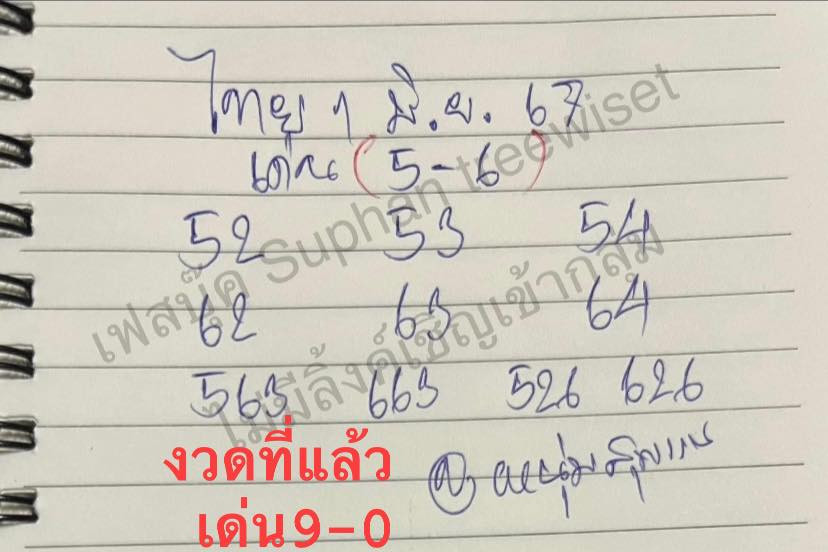 ไทย 1 มิ.ย. 67
เด่น (5-6)
52 53 54
62 63 64
563 663 526 626
งวดที่แล้ว
เด่น 9-0
เฟสบุ๊ค Suphan treewiset
ไม่มีลิ้งค์เชิญเข้ากลุ่ม